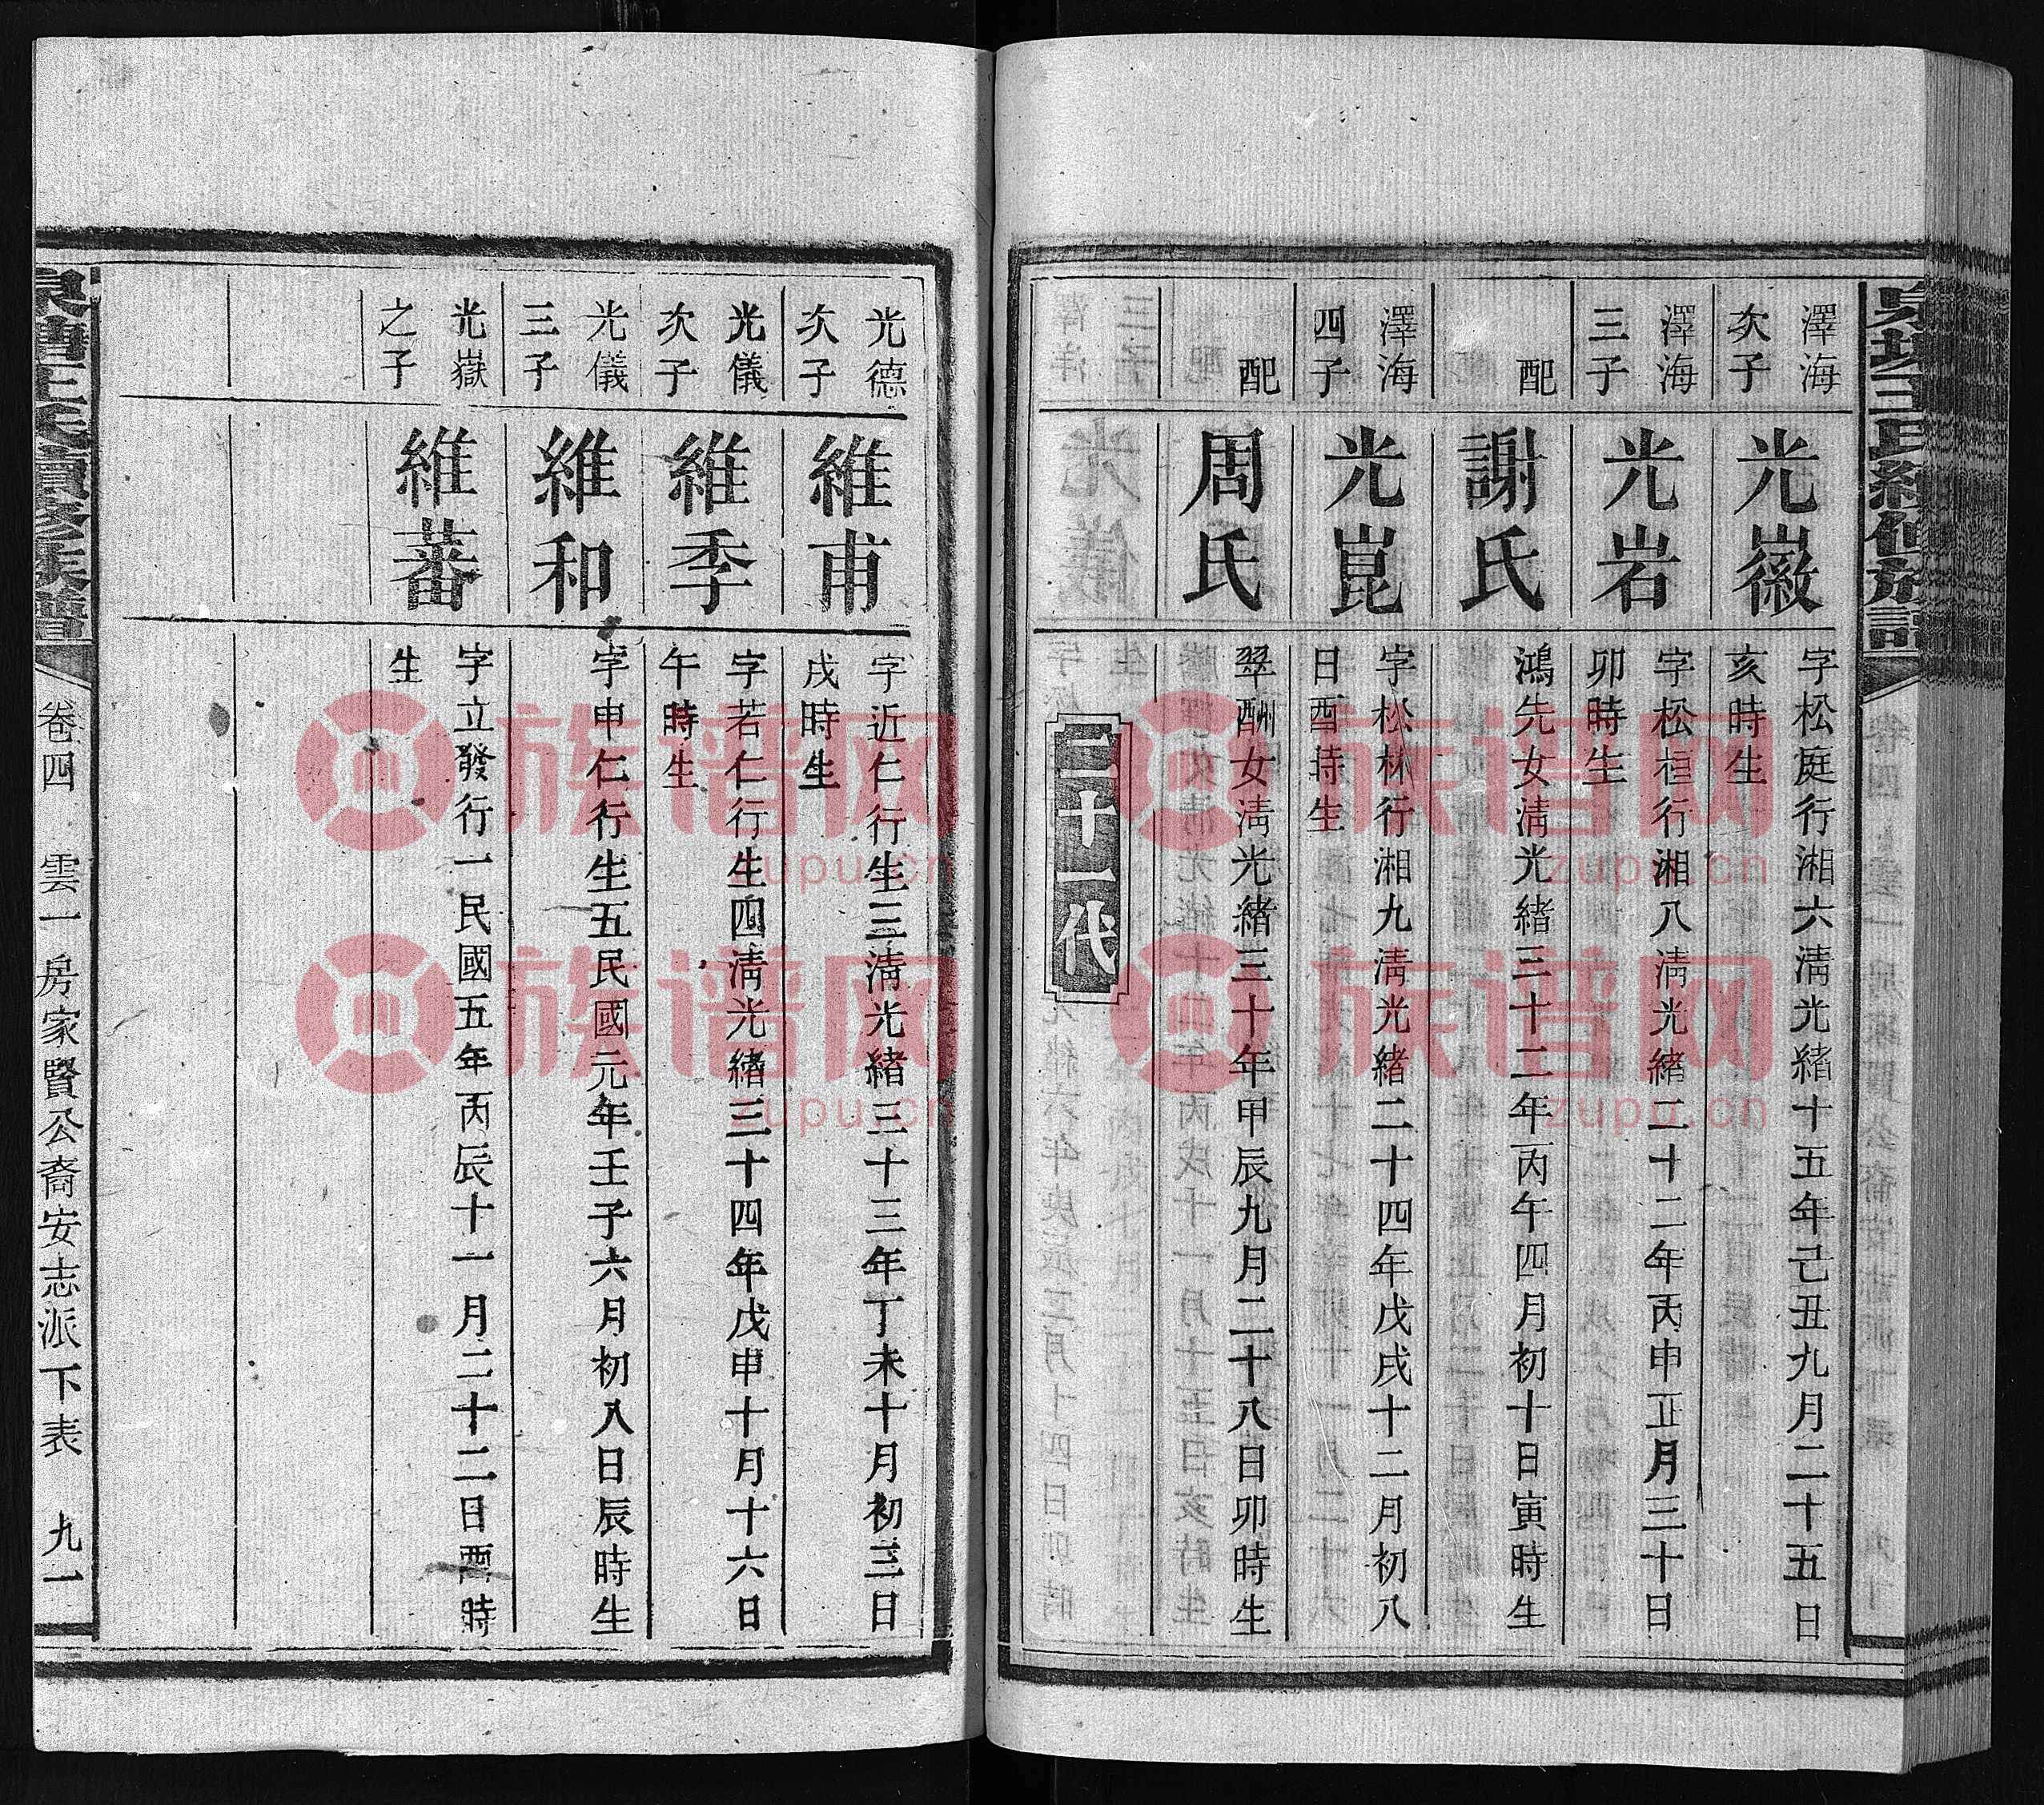 澤海
次子
光徽
字松庭行湘六清光緒十五年己丑九月二十五日
亥時生
澤海
三子
光岩
字松桓行湘八清光緒二十二年丙申正月三十日
卯時生
配
謝氏
鴻先女清光緒三十二年丙午四月初十日寅時生
澤海
四子
光崑
字松林行湘九清光緒二十四年戊戌十二月初八
日酉時生
配
周氏
翠酬女清光緒三十年甲辰九月二十八日卯時生
三十一代
光德
次子
維甫
字近仁行生三清光緒三十三年丁未十月初三日
戌時生
光儀
次子
維季
字若仁行生四清光緒三十四年戊申十月十六日
午時生
光儀
三子
維和
字申仁行生五民國元年壬子六月初八日辰時生
光嶽
之子
維蕃
字立發行一民國五年丙辰十一月二十二日酉時
生
王氏續修族譜
卷四 雲一房家賢公裔安志派下表 九一
族谱网
zupu.cn
族谱网
zupu.cn
族谱网
zupu.cn
族谱网
zupu.cn